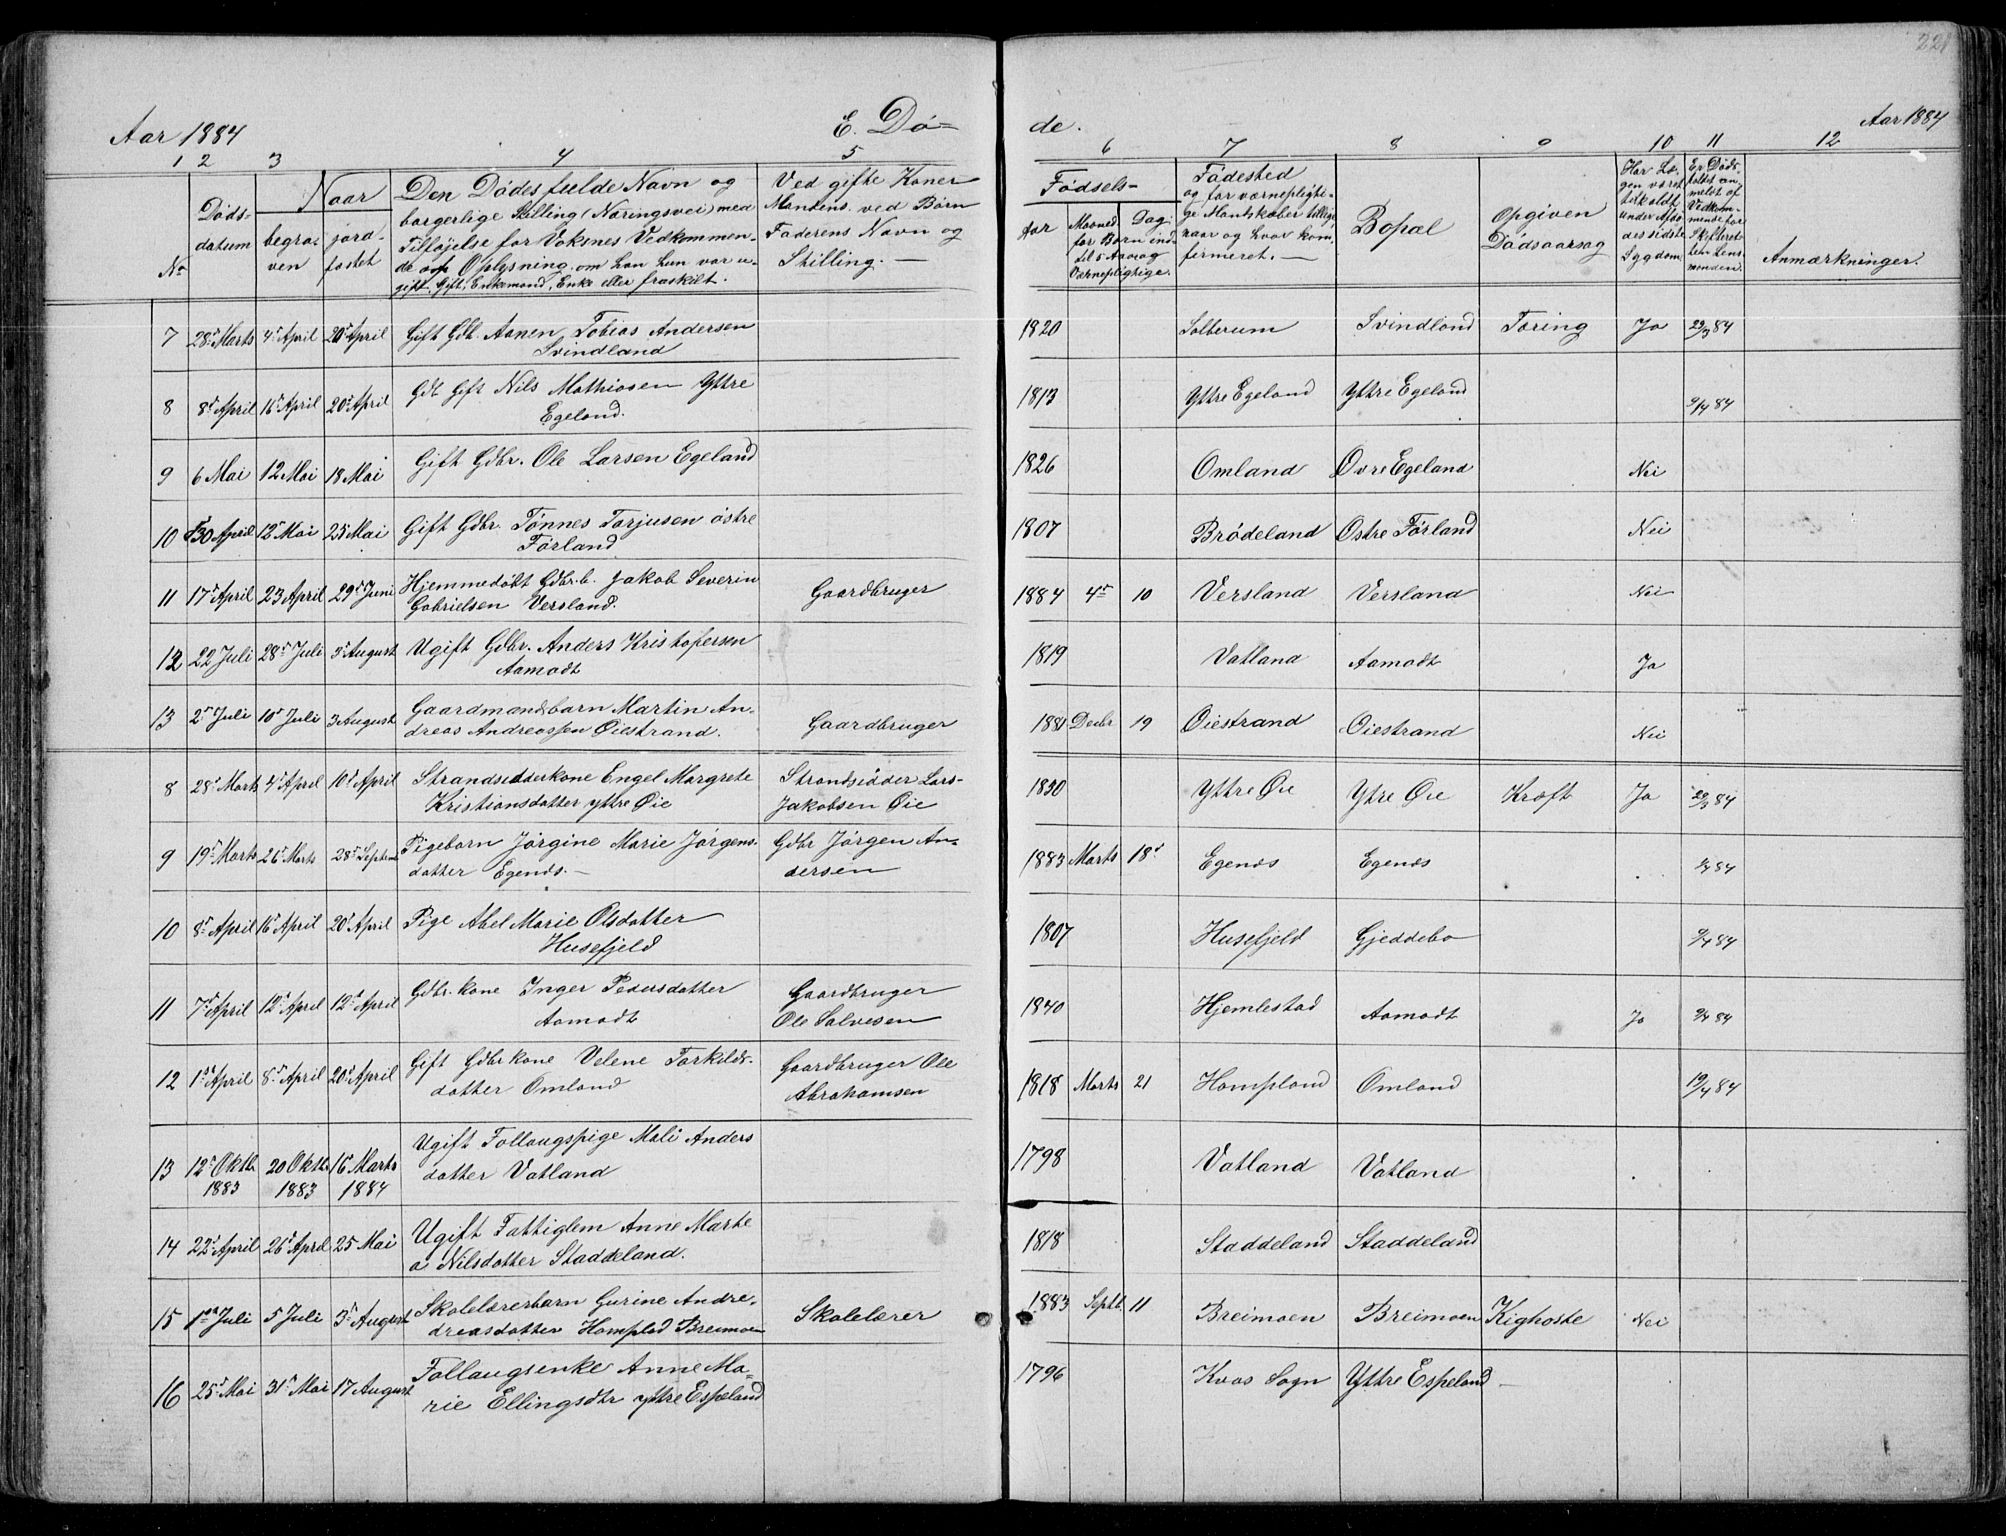 221
Aar 1884 E. Dö- de. Aar 1884
1 2 3 4 5 6 7 8 9 10 11 12
No
Döds-
datum
Naar
begra-
ven
jord-
fæstet
Den Dödes fulde Navn og
borgerlige Stilling (Næringsvei) med
Tilføjelse for Voxnes Vedkommen-
de om Oplysning om han hun var u-
gift, Gift, Enkemand, Enke eller fraskilt.
Ved gifte Koner
Mandens, ved Børn
Faderens Navn og
Stilling. —
Födsels-
Aar
Maaned
Dag
for Børn ind-
til 5 Aar og
Værnepligtige.
Födested
og for værnepligti-
ge Mandskaber tillige
naar og hvor kon-
firmeret. —
Bopæl
Opgiven
Dødsaarsag
Har Læ-
gen været
tilkaldt
under Afdö-
des sidste
Sygdom
Er Døds-
faldet an-
meldt af
Vedkom-
mende for
Skifteret-
ten Lens-
manden
Anmærkninger.
7 28de Marts 4de April 20de April Gift Gdb. Aanen Tobias Andersen 1820 Salterum Svindland Tæring Ja 29/3 84
Svindland
8 8de April 16de April 20de April Gdb Gift Nils Mathiasen Yttre 1813 Yttre Egeland Yttre Egeland 9/4 84
Egeland.
9 6 Mai 12 Mai 18 Mai Gift Gdbr. Ole Larsen Egeland 1826 Omland Øvre Egeland Nei
10 30 April 12 Mai 25 Mai Gift Gdbr. Tønnes Tarjusen østre 1807 Brødeland Østre Førland Nei
Førland
11 17de April 23 April 29de Juni Hjemmedøbt Gdbr.b. Jakob Severin Gaardbruger 1884 4de 10 Versland Versland Nei
Gabrielsen Versland.
12 22 Juli 28de Juli 3de August Ugift Gdbr. Anders Kristofersen 1819 Vatland Aamodt Ja
Aamodt
13 2de Juli 10de Juli 3 August Gaardmandsbarn Martin An- Gaardbruger 1881 Decbr 19 Øiestrand Øiestrand Nei
dreas Andreassen Øiestrand.
8 28de Marts 4de April 10de April Strandsidderkone Engel Margrete Strandsidder Lars- 1830 Yttre Øie Ytre Øie Kræft Ja 29/3 84
Kristiansdatter yttre Øie Jakobsen Øie
9 19de Marts 26de Marts 28de Septem Pigebarn Jørgine Marie Jørgens- Gdbr Jørgen An- 1883 Marts 18de Egenæs Egenæs 84
datter Egenæs.— dersen
10 8de April 16de April 20de April Pige Abel Marie Olsdatter 1807 Husefjeld Gjeddebo 9/4 84
Husefjeld
11 7de April 12de April 12de April Gdbr. kone Inger Pedersdatter Gaardbruger 1840 Hjemlestad Aamodt Ja 9/4 84
Aamodt Ole Salvesen
12 1ste April 8de April 20de April Gift Gdbr kone Velene Torkilds- Gaardbruger Ole 1818 Marts 21 Hompland Omland 19/4 84
datter Omland Abrahamsen
13 12te Oktb. 20 Oktb. 16de Marts Ugift Follaugspige Mali Anders 1798 Vatland Vatland
1883 1883 1884 datter Vatland
14 22de April 26de April 25 Mai Ugift Fattiglem Anne Marte 1818 Staddeland Staddeland
a Nilsdatter Staddeland.
15 1ste Juli 5 Juli 3de August Skolelærerbarn Gurine Andre- Skolelærer 1883 Septb. 11 Breimoen Breimoen Kighoste Nei
dreasdatter Hompland Breimoen
16 25de Mai 31te Mai 17 August Follaugsenke Anne Ma- 1796 Kvas Sogn Yttre Espeland —
rie Ellingsdtr yttre Espeland